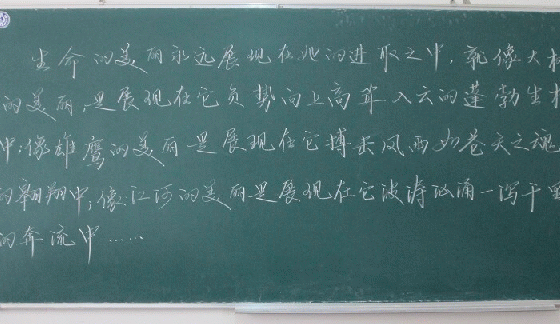 生命的美丽永远展现在她的进取之中,就像大树
的美丽,是展现在它负势向上高耸入云的蓬勃生机
中;像雄鹰的美丽是展现在它搏击风雨如苍天之魂
的翱翔中;像江河的美丽是展现在它波涛汹涌一泻千里
的奔流中……